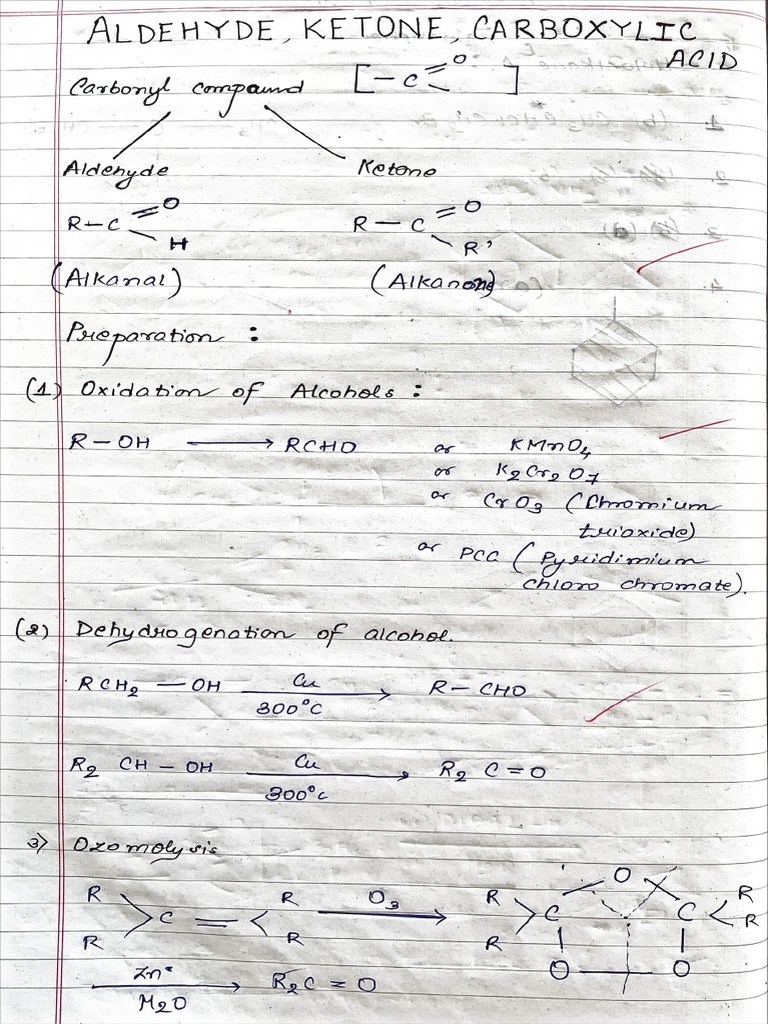 ALDEHYDE, KETONE, CARBOXYLIC
ACID
Carbonyl compound [-C=O]
Aldehyde Ketone
R-C=O R-C=O
H R'
(Alkanal) (Alkanone)
Preparation :
(1) Oxidation of Alcohols :
R-OH → RCHO or KMnO4
or K2Cr2O7
or CrO3 (Chromium
trioxide)
or PCC (Pyridimium
chloro chromate).
(2) Dehydrogenation of alcohol.
RCH2-OH Cu → R-CHO
300°C
R2 CH-OH Cu → R2 C=O
300°c
3) Ozomolysis
O
R R O3 → R R
C= C C
R R R O O R
Zn → R2C=O
H2O